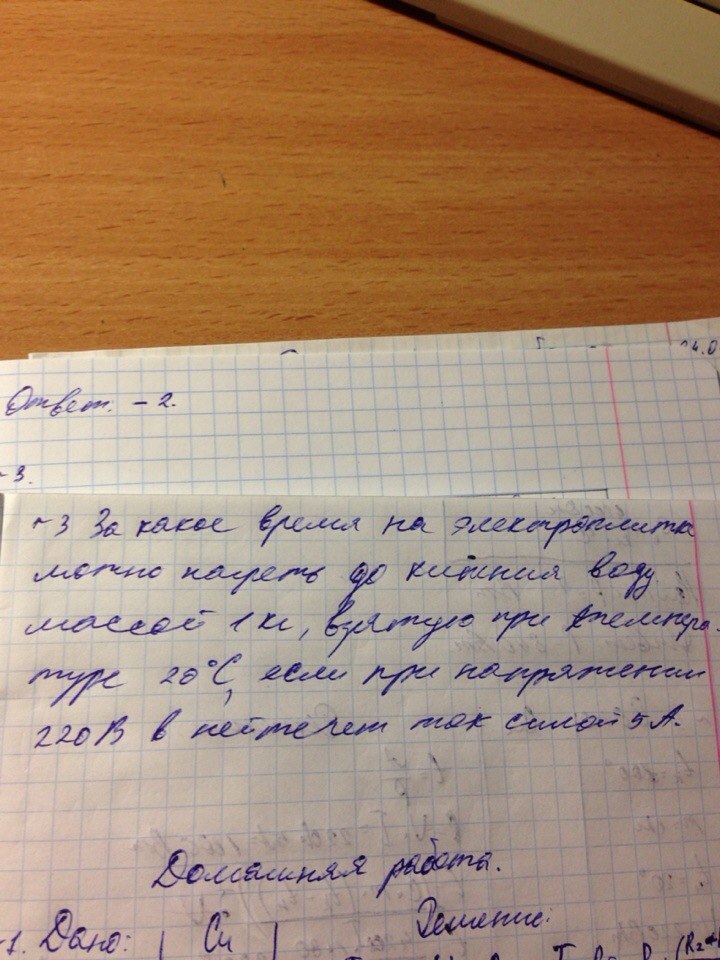 Ответ: - 2.
~3.
~3 За какое время на электроплитке
можно нагреть до кипения воду
массой 1 кг, взятую при темпера-
туре 20°С, если при напряжении
220 В в ней течет ток силой 5 А.
Домашняя работа.
~1. Дано: | Си | Решение: